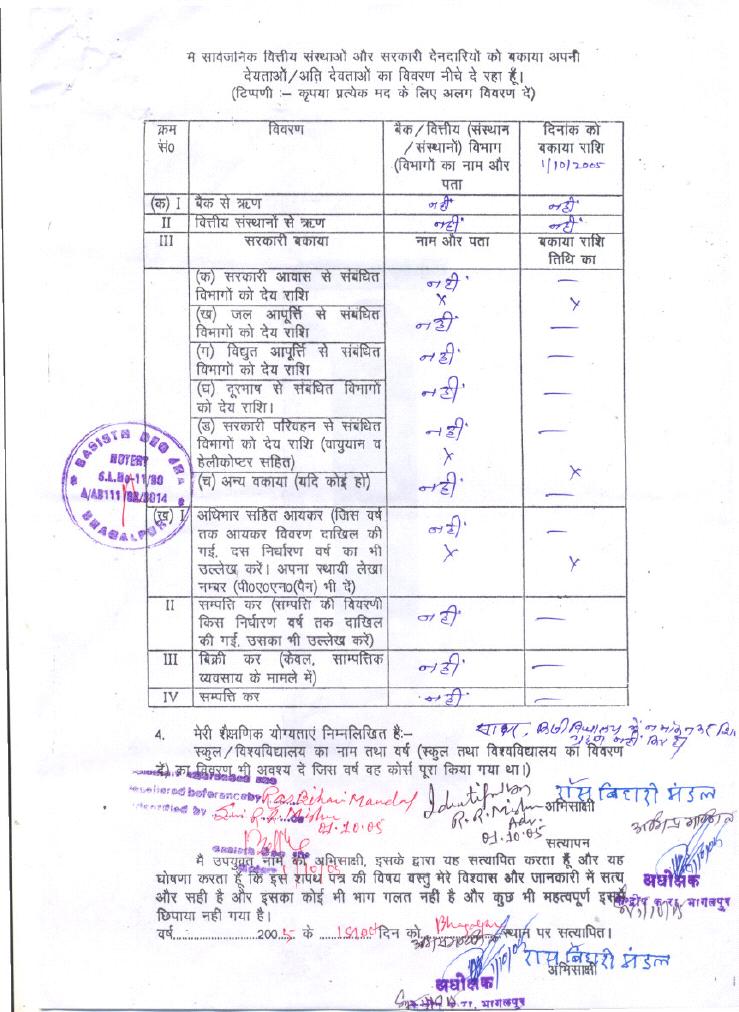 मै सार्वजनिक वित्तीय संस्थाओं और सरकारी देनदारियों को बकाया अपनी
देयताओं/अति देवताओं का विवरण नीचे दे रहा हूँ।
(टिप्पणी :– कृपया प्रत्येक मद के लिए अलग विवरण दें)
क्रम सं० विवरण बैंक/वित्तीय (संस्थान दिनांक को
/संस्थानों) विभाग बकाया राशि
(विभागों का नाम और 1/10/2005
पता
(क) I बैंक से ऋण नहीं नहीं
II वित्तीय संस्थानों से ऋण नहीं नहीं
III सरकारी बकाया नाम और पता बकाया राशि
तिथि का
(क) सरकारी आवास से संबंधित नहीं —
विभागों को देय राशि x x
(ख) जल आपूर्त्ति से संबंधित नहीं —
विभागों को देय राशि
(ग) विद्युत आपूर्त्ति से संबंधित नहीं —
विभागों को देय राशि
(घ) दूरभाष से संबंधित विभागों नहीं —
को देय राशि।
(ड) सरकारी परिवहन से संबंधित नहीं —
विभागों को देय राशि (वायुयान व
हेलीकोप्टर सहित) x x
(च) अन्य वकाया (यदि कोई हो) नहीं —
BASISTH DEO JHA
NOTERY
S.L.No-11/90
BHAGALPUR
(ख) I अधिभार सहित आयकर (जिस वर्ष नहीं —
तक आयकर विवरण दाखिल की
गई, दस निर्धारण वर्ष का भी x x
उल्लेख करें। अपना स्थायी लेखा
नम्बर (पी०ए०एन०(पैन) भी दें)
II सम्पत्ति कर (सम्पत्ति की विवरणी नहीं —
किस निर्धारण वर्ष तक दाखिल
की गई, उसका भी उल्लेख करें)
III बिक्री कर (केवल, साम्पत्तिक नहीं —
व्यवसाय के मामले में)
IV सम्पत्ति कर नहीं —
4. मेरी शैक्षणिक योग्यताएं निम्नलिखित है:–
स्कूल/विश्वविद्यालय का नाम तथा वर्ष (स्कूल तथा विश्वविद्यालय का विवरण
दें) का विवरण भी अवश्य दें जिस वर्ष वह कोर्स पूरा किया गया था।)
by Ras Bihari Mandal
Identified by Sri R. R. Mishra
01.10.05
R. R. Mishra
Adv.
01.10.05
रास बिहारी मंडल
अभिसाक्षी
सत्यापन
मै उपर्युक्त नाम का अभिसाक्षी, इसके द्वारा यह सत्यापित करता हूँ और यह
घोषणा करता हूँ कि इस शपथ पत्र की विषय वस्तु मेरे विश्वास और जानकारी में सत्य
और सही है और इसका कोई भी भाग गलत नहीं है और कुछ भी महत्वपूर्ण इसमें
छिपाया नहीं गया है।
अधीक्षक
भागलपुर
वर्ष 2005 के 1st Oct दिन को स्थान पर सत्यापित।
रास बिहारी मंडल
अभिसाक्षी
अधीक्षक
भागलपुर